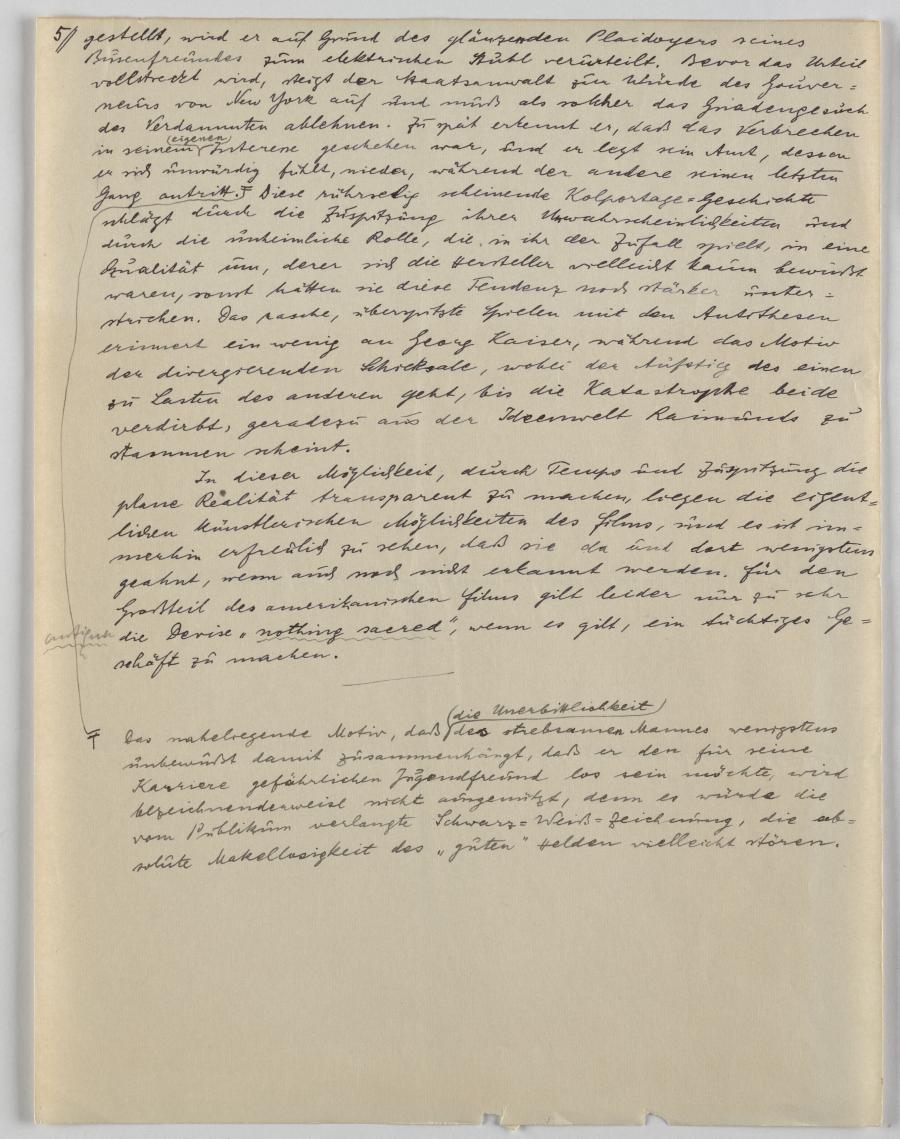 5/ gestellt, wird er auf Grund des glänzenden Plaidoyers seines
Busenfreundes zum elektrischen Stuhl verurteilt. Bevor das Urteil
vollstreckt wird, steigt der Staatsanwalt zur Würde des Gouver=
neurs von New York auf und muß als solcher das Gnadengesuch
des Verdammten ablehnen. Zu spät erkennt er, daß das Verbrechen
in seinem (eigenen) Interesse geschehen war, und er legt sein Amt, dessen
er sich unwürdig fühlt, nieder, während der andere seinen letzten
Gang antritt. Ŧ Diese rührselig scheinende Kolportage=Geschichte
schlägt durch die Zuspitzung ihrer Unwahrscheinlichkeiten und
durch die unheimliche Rolle, die in ihr der Zufall spielt, in eine
Qualität um, derer sich die Hersteller vielleicht kaum bewußt
waren, sonst hätten sie diese Tendenz noch stärker unter=
strichen. Das rasche, überspitzte Spielen mit den Antithesen
erinnert ein wenig an Georg Kaiser, während das Motiv
der divergierenden Schicksale, wobei der Aufstieg des einen
zu Lasten des anderen geht, bis die Katastrophe beide
verdirbt, geradezu aus der Ideenwelt Raimunds zu
stammen scheint.
In dieser Möglichkeit, durch Tempo und Zuspitzung die
plane Realität transparent zu machen, liegen die eigent=
lichen künstlerischen Möglichkeiten des Films, und es ist im=
merhin erfreulich zu sehen, daß sie da und dort wenigstens
geahnt, wenn auch noch nicht erkannt werden. Für den
Großteil des amerikanischen Films gilt leider nur zu sehr
die Devise „nothing sacred", wenn es gilt, ein tüchtiges Ge=
schäft zu machen.
Ŧ Das naheliegende Motiv, daß (die Unerbittlichkeit) des strebsamen Mannes wenigstens
unbewußt damit zusammenhängt, daß er den für seine
Karriere gefährlichen Jugendfreund los sein möchte, wird
bezeichnenderweise nicht ausgenützt, denn es würde die
vom Publikum verlangte Schwarz=Weiß=Zeichnung, die ab=
solute Makellosigkeit des „guten" Helden vielleicht stören.